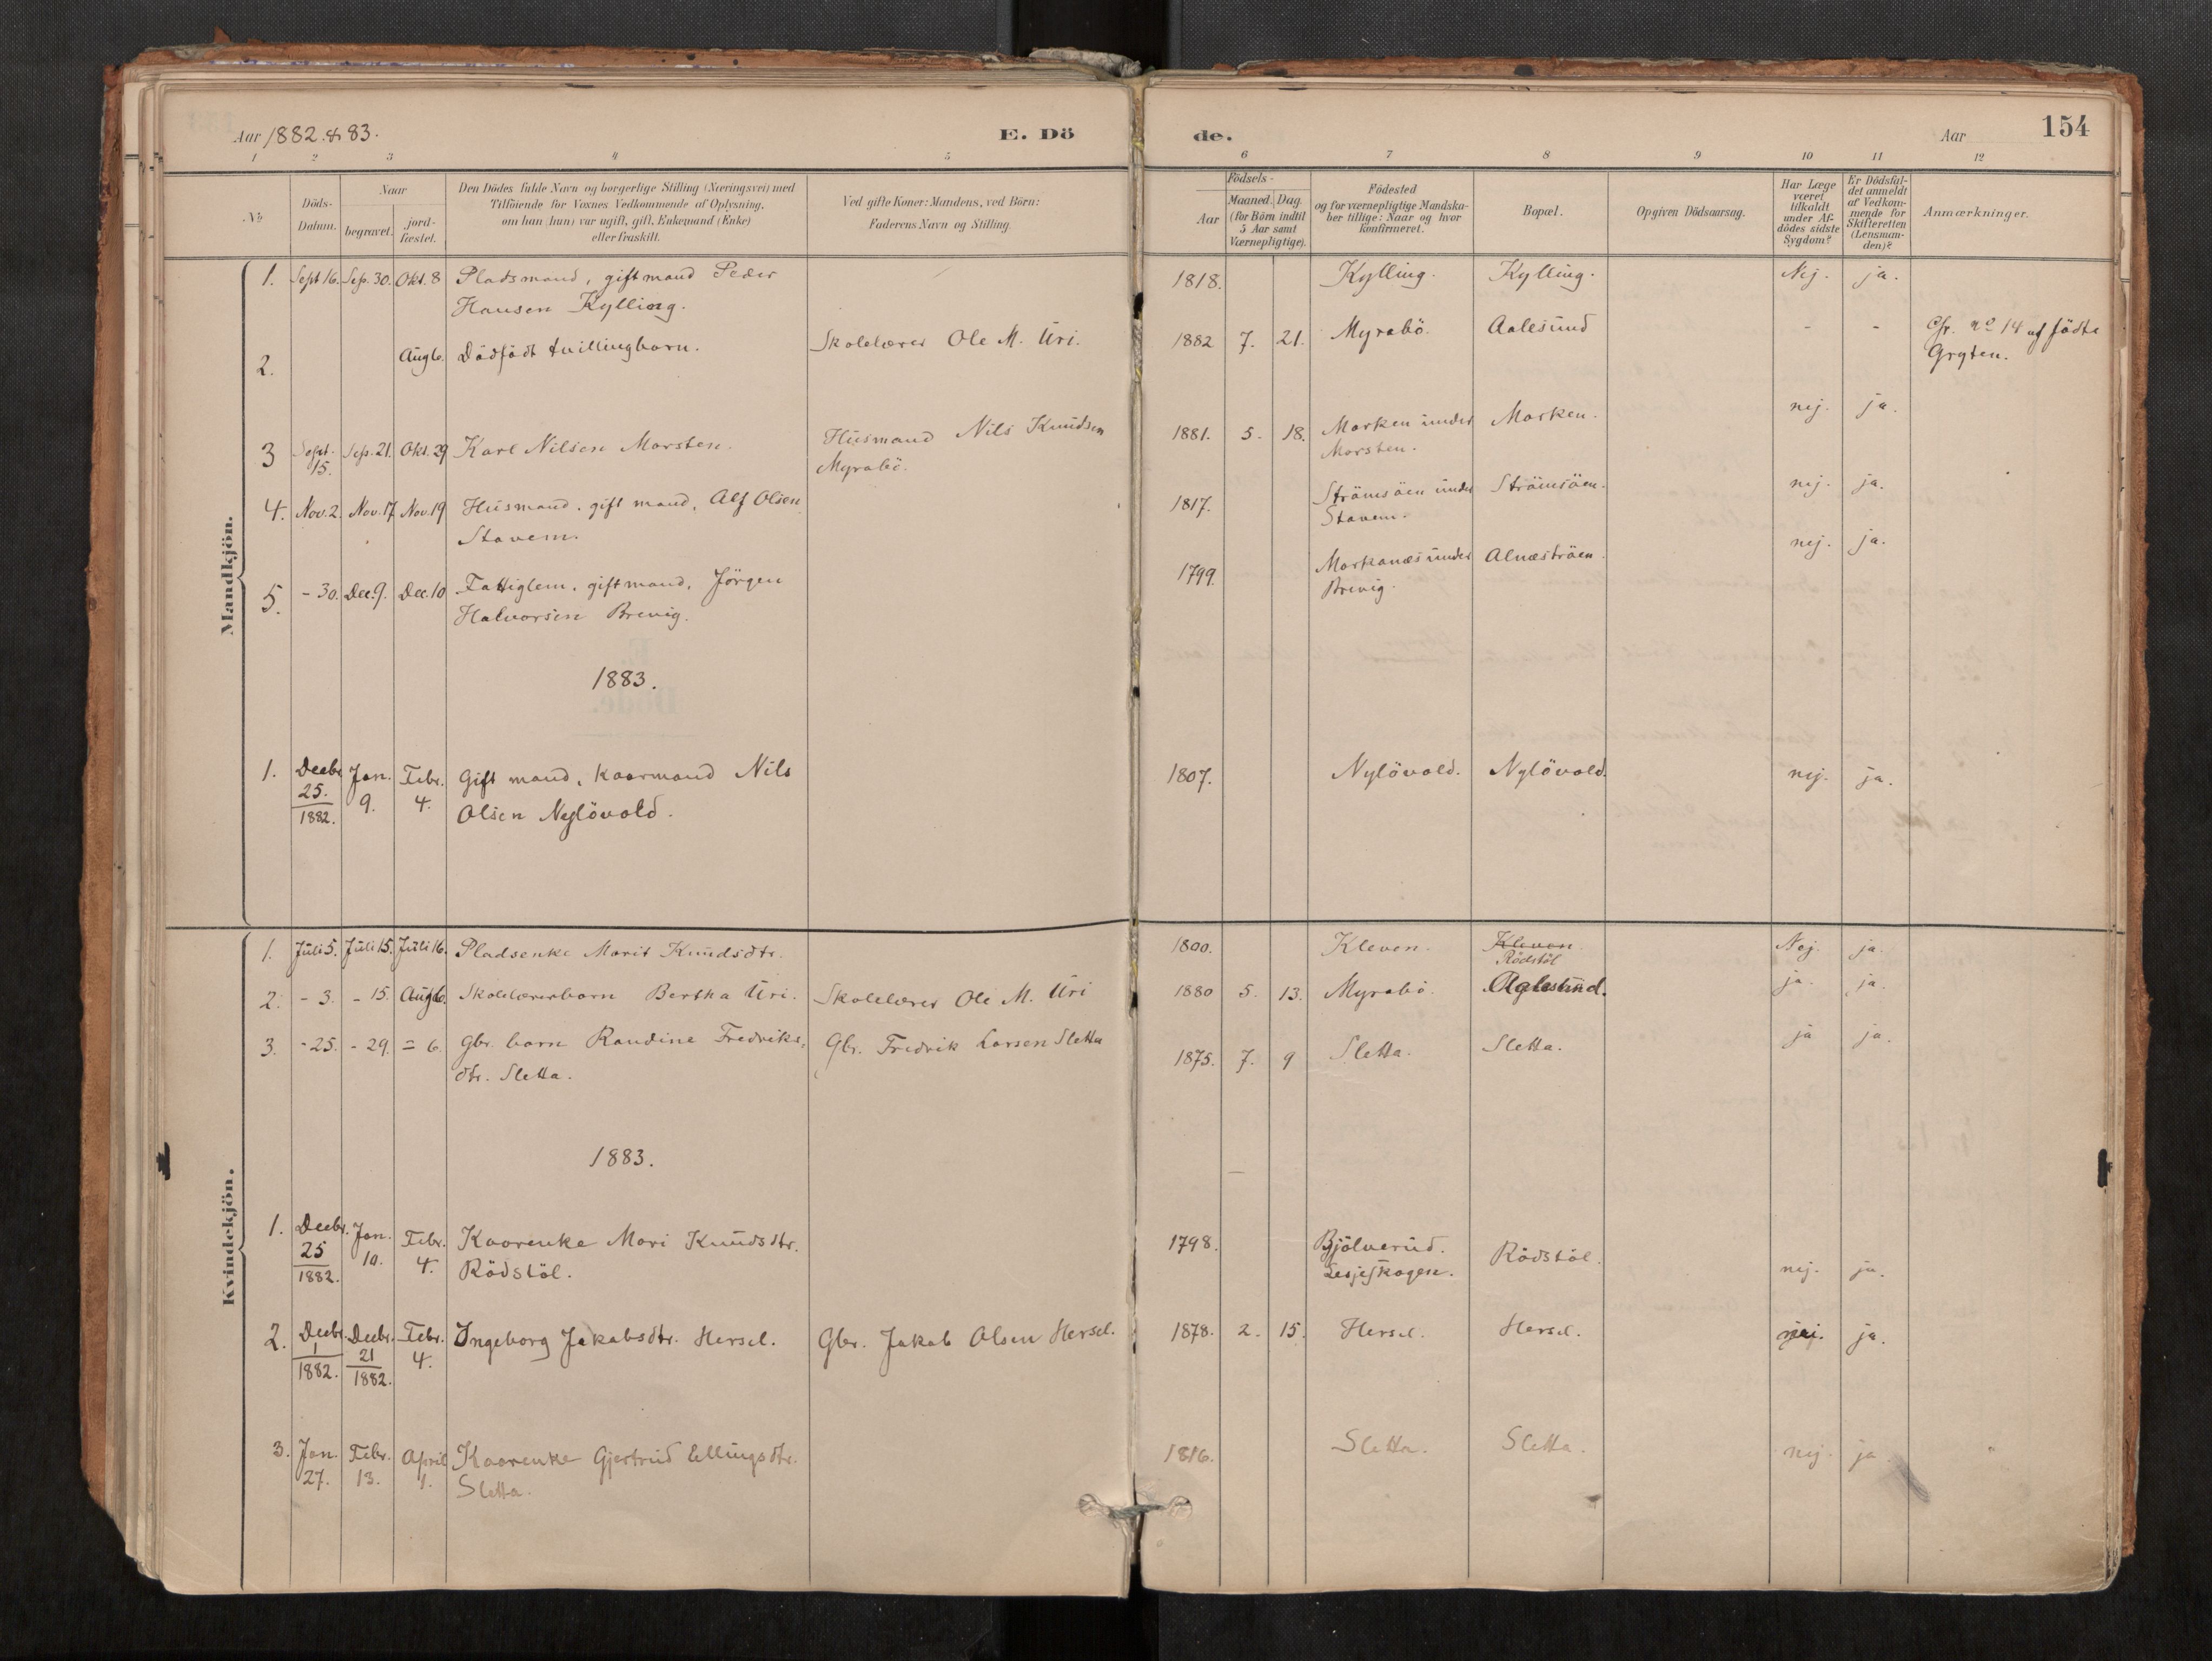 Aar 1882 & 83.
E. Dö
de.
Aar
154
1 2 3 4 5 6 7 8 9 10 11 12
No
Döds-
Datum.
Naar
begravet.
jord-
fæstet.
Den Dödes fulde Navn og borgerlige Stilling (Næringsvei) med
Tilföiende for Voxnes Vedkommende af Oplysning,
om han (hun) var ugift, gift, Enkemand (Enke)
eller fraskilt.
Ved gifte Koner: Mandens, ved Börn:
Faderens Navn og Stilling.
Födsels-
Aar
Maaned. Dag.
(for Börn indtil
5 Aar samt
Værnepligtige).
Födested
og for værnepligtige Mandska-
ber tillige: Naar og hvor
konfirmeret.
Bopæl.
Opgiven Dödsaarsag.
Har Læge
været
tilkaldt
under Af-
dödes sidste
Sygdom?
Er Dödsfal-
det anmeldt
af Vedkom-
mende for
Skifteretten
(Lensman-
den)?
Anmærkninger.
Mandkjön.
1. Sept 16. Sep. 30. Okt. 8 Pladsmand, gift mand Peder 1818. Kylling. Kylling. Nej. ja.
Hansen Kylling.
2. Aug 6. Dödfödt tvillingbarn. Skolelærer Ole M. Uri. 1882 7. 21. Myrabö. Aalesund - - Cfr. no 14 af födte
Gryten.
3 Sept. 15. Sep. 21. Okt. 29 Karl Nilsen Marsten. Husmand Nils Knudsen 1881. 5. 18. Marken under Marken. nej. ja.
Myrabö. Marsten.
4. Nov. 2. Nov. 17 Nov. 19 Husmand, gift mand, Alf Olsen 1817. Strömsöen under Strömsöen. nej. ja.
Stavem. Stavem.
5. - 30. Dec. 9. Dec. 10 Fattiglem, gift mand, Jörgen 1799. Markanæs under Alnæströen. nej. ja.
Halvorsen Brevig. Brevig.
1883.
1. Decbr. 25. 1882. Jan. 9. Febr. 4. Gift mand, kaarmand Nils 1807. Nylövold. Nylövold. nej. ja.
Olsen Nylövold.
Kvindekjön.
1. Juli 5. Juli 15. Juli 16. Pladsenke Marit Knudsdtr. 1800. Kleven. Kleven Nej. ja.
Rödstöl
2. - 3. - 15. Aug 6. Skolelærerbarn Bertha Uri. Skolelærer Ole M. Uri 1880 5. 13. Myrabö. Aalesund. ja. ja.
3. - 25. - 29. = 6. Gbr. barn Randine Fredriks- Gbr. Fredrik Larsen Sletta 1875. 7. 9 Sletta. Sletta. ja ja.
dtr. Sletta.
1883.
1. Decbr. 25 1882. Jan. 10. Febr. 4. Kaarenke Mari Knudsdtr. 1798. Bjölverud. Rödstöl. nej. ja.
Rödstöl. Lesjeskogen.
2. Decbr. 1 1882. Decbr. 21 1882. Febr. 4. Ingeborg Jakobsdtr. Hersel. Gbr. Jakob Olsen Hersel. 1878. 2. 15. Hersel. Hersel. nej. ja.
3. Jan. 27. Febr. 13. April 1. Kaarenke Gjertrud Ellingsdtr. 1816. Sletta. Sletta. nej. ja.
Sletta.